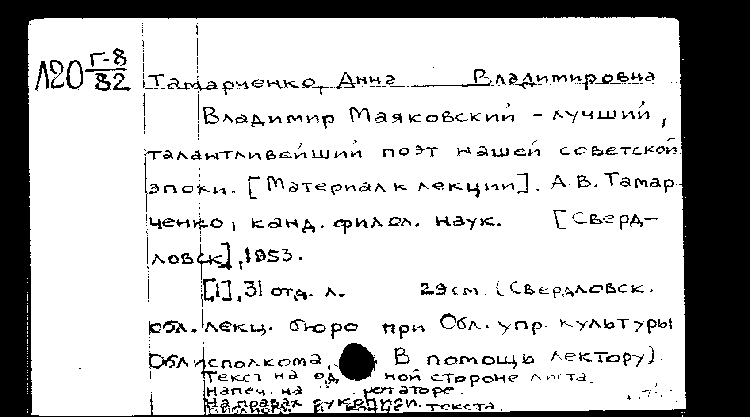 Л20 Г-8/82
Тамарченко, Анна Владимировна
Владимир Маяковский - лучший,
талантливейший поэт нашей советской
эпохи. [Материал к лекции]. А.В. Тамар-
ченко, канд. филол. наук. [Сверд-
ловск], 1953.
[1], 31 отд. л. 29 см. (Свердловск.
обл. лекц. бюро при Обл. упр. культуры
Облисполкома. В помощь лектору).
Текст на одной стороне листа.
Напеч. на ротаторе.
На правах рукописи.
в конце текста.